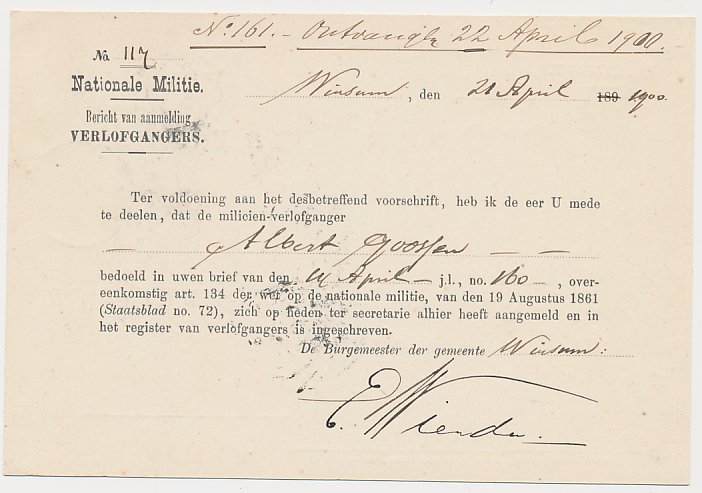 No. 161. - Ontvangen 22 April 1900.-
No 117
Nationale Militie.
Winsum, den 21 April 189 1900.
Bericht van aanmelding
VERLOFGANGERS.
Ter voldoening aan het desbetreffend voorschrift, heb ik de eer U mede
te deelen, dat de milicien-verlofganger
— Albert Goossen — —
bedoeld in uwen brief van den 14 April — j.l., no. 160 — , over-
eenkomstig art. 134 der wet op de nationale militie, van den 19 Augustus 1861
(Staatsblad no. 72), zich op heden ter secretarie alhier heeft aangemeld en in
het register van verlofgangers is ingeschreven.
De Burgemeester der gemeente Winsum:
E. Wiendu